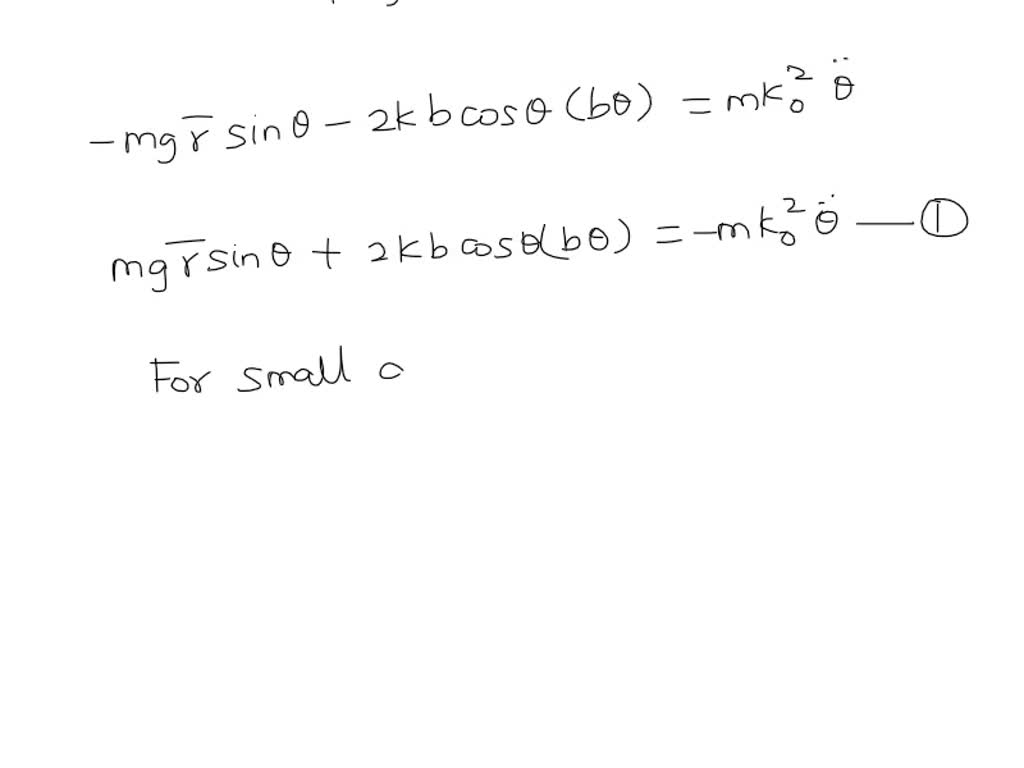 -mg r̅ sin θ - 2k b cos θ (bθ) = mk₀² θ̈
mg r̅ sin θ + 2k b cos θ (bθ) = -mk₀² θ̈ — ①
For small